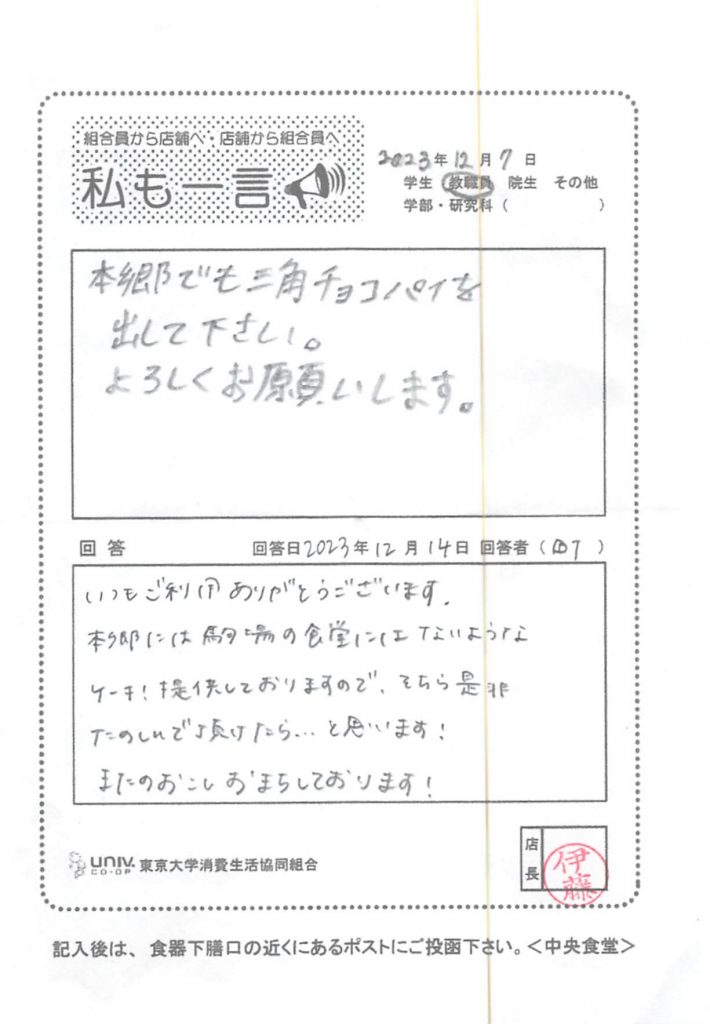 組合員から店舗へ・店舗から組合員へ
私も一言
2023年12月7日
学生 教職員 院生 その他
学部・研究科（ ）
本郷でも三角チョコパイを
出して下さい。
よろしくお願いします。
回答 回答日2023年12月14日 回答者（ ）
いつもご利用ありがとうございます。
本郷には駒場の食堂にはないような
ケーキ！提供しておりますので、そちら是非
たのしんで頂けたら…と思います！
またのおこしおまちしております！
UNIV. CO-OP 東京大学消費生活協同組合
店長
伊藤
記入後は、食器下膳口の近くにあるポストにご投函下さい。＜中央食堂＞